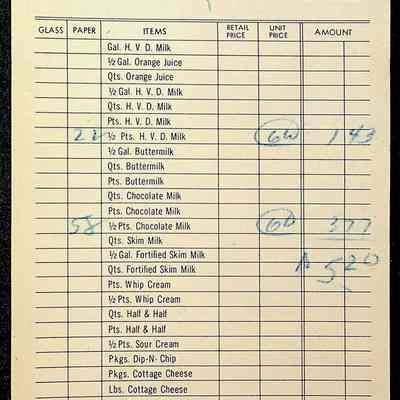 GLASS PAPER ITEMS RETAIL PRICE UNIT PRICE AMOUNT
Gal. H. V. D. Milk
½ Gal. Orange Juice
Qts. Orange Juice
½ Gal. H. V. D. Milk
Qts. H. V. D. Milk
Pts. H. V. D. Milk
22 ½ Pts. H. V. D. Milk 6½ 1 43
½ Gal. Buttermilk
Qts. Buttermilk
Pts. Buttermilk
Qts. Chocolate Milk
Pts. Chocolate Milk
58 ½ Pts. Chocolate Milk 6½ 377
Qts. Skim Milk
½ Gal. Fortified Skim Milk 520
Qts. Fortified Skim Milk
Pts. Whip Cream
½ Pts. Whip Cream
Qts. Half & Half
Pts. Half & Half
½ Pts. Sour Cream
Pkgs. Dip-N- Chip
Pkgs. Cottage Cheese
Lbs. Cottage Cheese